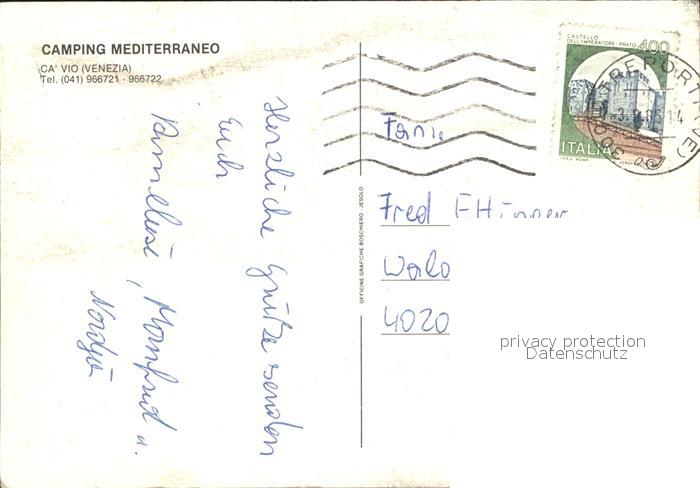 CAMPING MEDITERRANEO
CA' VIO (VENEZIA)
Tel. (041) 966721 - 966722
Herzliche Grüße senden
Euch
Anneliese, Manfred u.
OFFICINE GRAFICHE BOSCHIERO - JESOLO
CASTELLO
DELL'IMPERATORE - PRATO 400
ITALIA
TREPORTI
Fam.
Fred
4020
privacy protection
Datenschutz